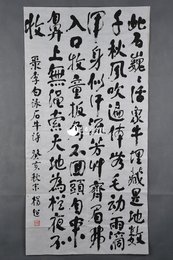 此石巍巍活象牛埋藏是地數
千秋風吹遍體毛動雨滴
渾身似汗流芳艸齊眉弗
入口牧童扳角不回頭自來
鼻上無繩索天地為欄夜不
收
李白詠石牛詩 癸亥秋末 楊